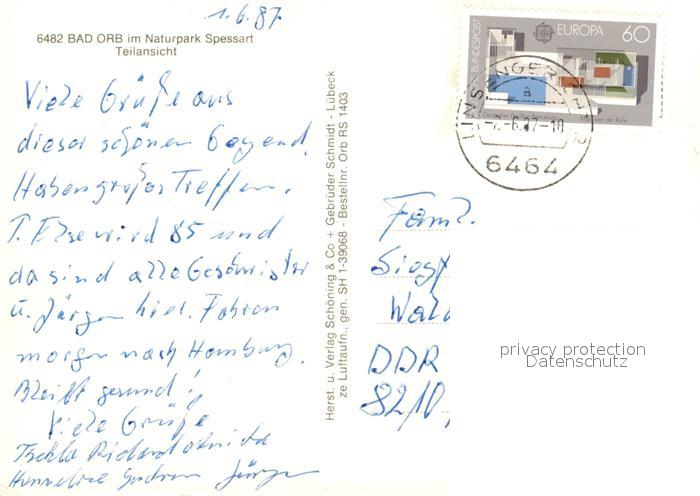 1.6.87.
6482 BAD ORB im Naturpark Spessart
Teilansicht
Viele Grüße aus
dieser schönen Gegend.
Haben großes Treffen.
T. Else wird 85 und
da sind alle Geschwister
u. Jürgen hier. Fahren
morgen nach Hamburg.
Bleibt gesund!
Viele Grüße
Richard
Hannelise Jürgen
Herst. u. Verlag Schöning & Co + Gebrüder Schmidt - Lübeck
ze Luftaufn., gen. SH 1-39068 - Bestellnr. Orb RS 1403
BUNDESPOST
EUROPA
60
6464
Fam.
Siegf
Wald
DDR
8210,
privacy protection
Datenschutz